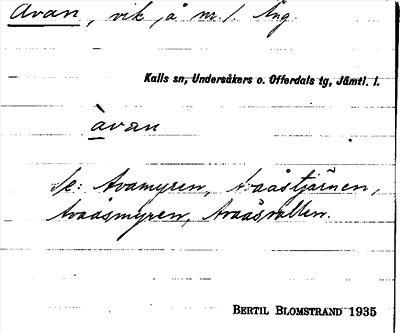 Avan, vik på nr 1. Äng
Kalls sn, Undersåkers o. Offerdals tg, Jämtl. l.
àvan
Se: Avamyren, Avaåstjärnen,
Avaåsmyren, Avaåsvallen.
BERTIL BLOMSTRAND 1935